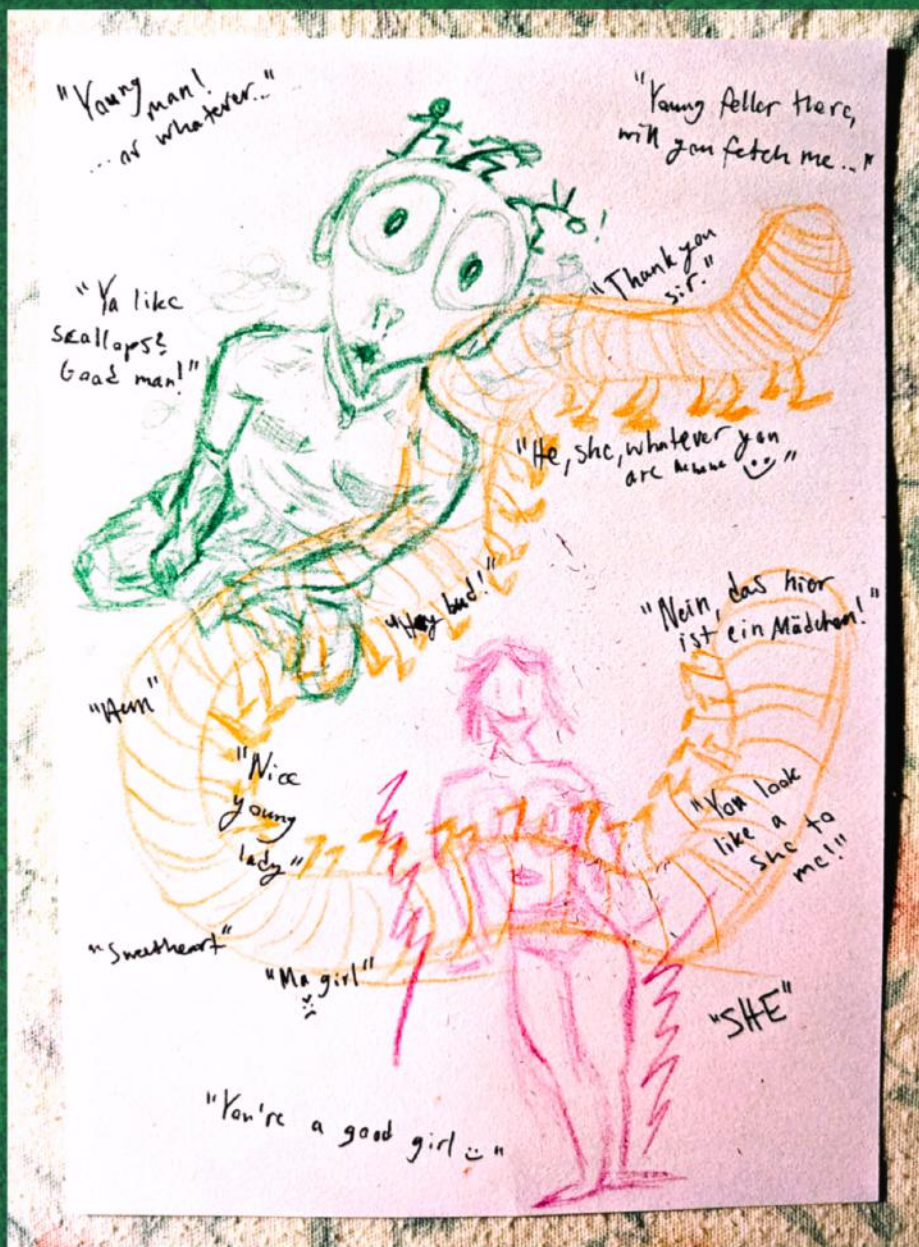 "Young
man!
... or whatever..."
"Young feller there,
will you fetch me..."
"Thank you
sir."
"Ya like
scallops?
Good man!"
"He, she, whatever you
are
"
"Hey bud!"
"Nein, das hier
ist ein Mädchen!"
"Hun"
"Nice
young
lady"
"You look
like a
she to
me!"
"Sweetheart"
"Ma girl"
"SHE"
"You're a good girl :)"